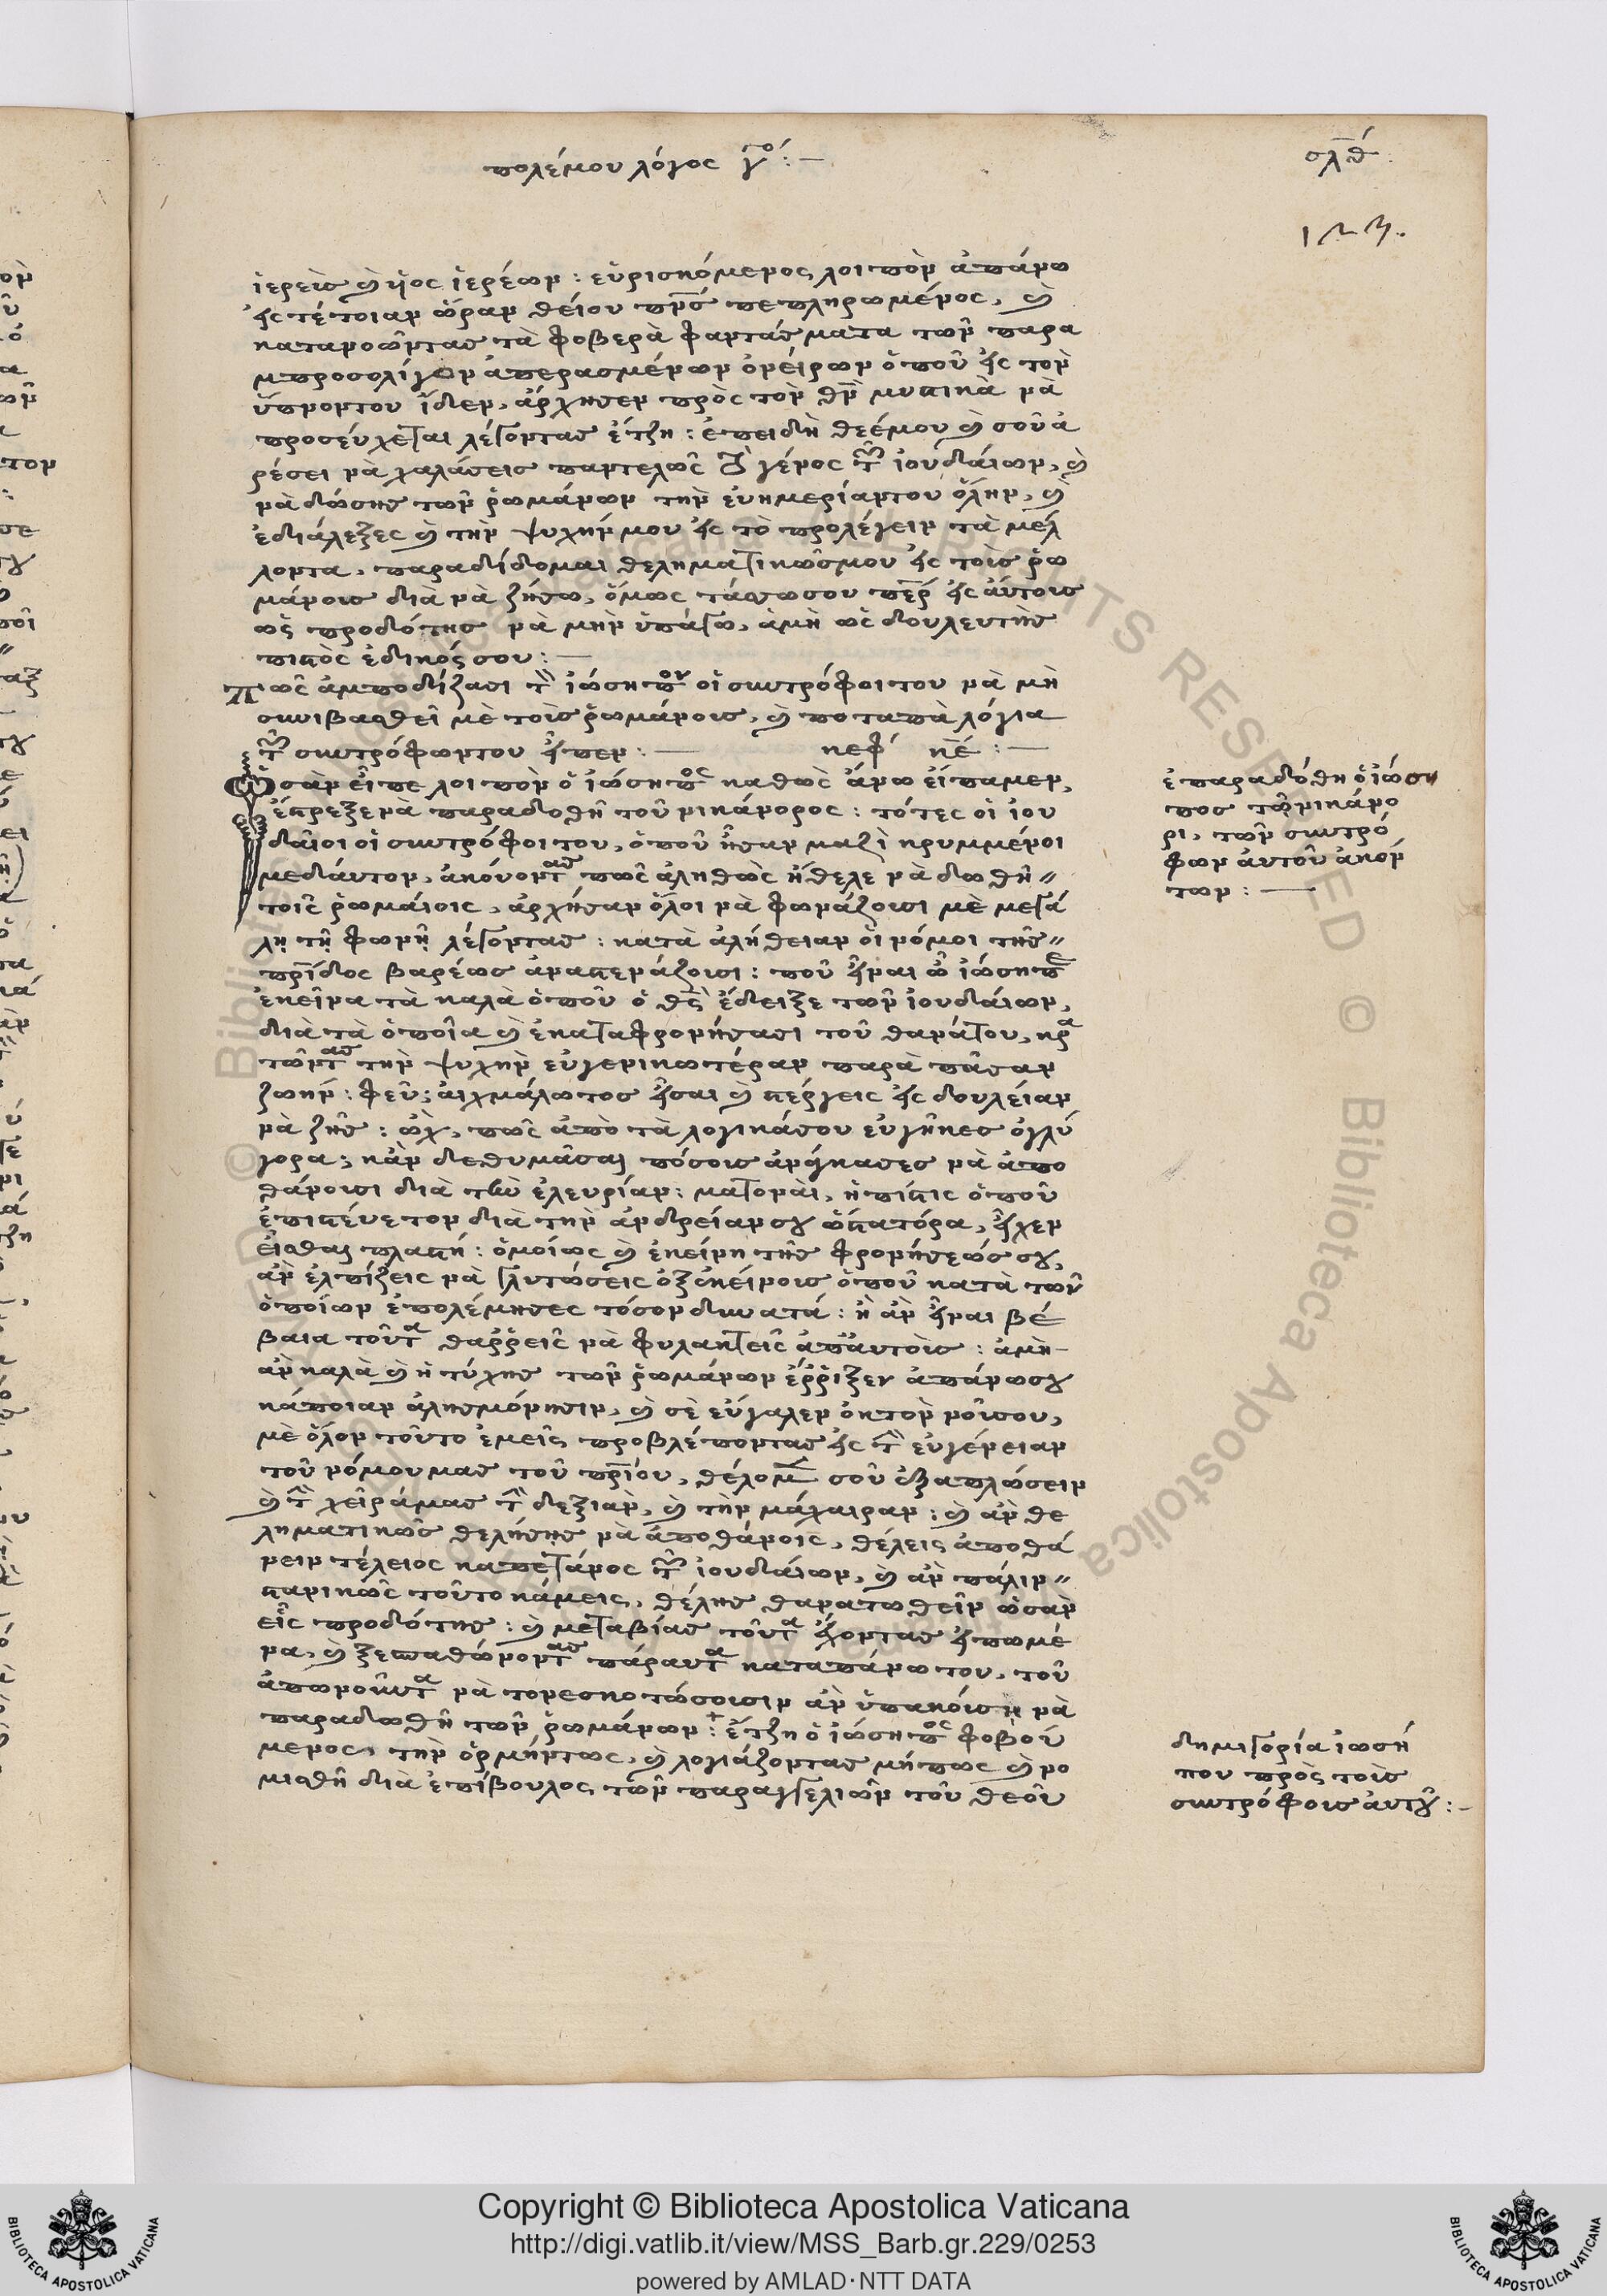 πολέμου λόγος γ^ον :—
σλθ΄
ἱερεὺς καὶ ὑιὸς ἱερέων : εὑρισκόμενος λοιπὸν ἀπάνω
εἰς τέτοιαν ὥραν θείου πνς πεπληρωμένος, καὶ
κατανοῶντας τὰ φοβερὰ φαντάσματα τῶν παρα
μπροσολίγον ἀπερασμένων ὀνείρων ὁποῦ εἰς τὸν
ὕπνοντου ἴδεν, ἄρχησεν πρὸς τὸν θν μυστικὰ νὰ
προσεύχεται λέγοντας έτζη : ἐπειδὴ θεέμου καὶ σοῦ ἀ
ρέσει νὰ χαλάσεις παντελῶς τὸ γένος τῶν ἰουδάιων, καὶ
νὰ δώσης τῶν ῥωμάνων τὴν ἐυημερίαντου ὅλην, καὶ
ἐδιάλεξες καὶ τὴν ψυχήν μου εἰς τὸ προλέγειν τὰ μέλ
λοντα, παραδίδομαι θεληματικῶσμου εἰς τοὺς ῥω
μάνους διὰ νὰ ζήσω, ὅμως τάσσωσου εἰς ἀυτους
ὡς προδότης νὰ μὴν ὑπάγω, ἀμὴ ὡς δουλευτὴς
πιστὸς ἐδικός σου :—
Πῶς ἀμποδίζασι τὸν ἰώσηπον οἱ συντρόφοι του νὰ μὴ
συνιβασθεῖ μὲ τοὺς ῥωμάνους, καὶ ποταπὰ λόγια
τῶν συντρόφωντου εἶπεν :— κεφ΄ κέ :—
Ὡσὰν εἶπε λοιπὸν ὁ ἰώσηπος καθὼς ἄνω εἴπαμεν,
ἔστρεξε νὰ παραδοθῆ τοῦ νικάνορος : τότες οἱ ἰου
δαῖοι οἱ συντρόφοι του, ὁποῦ ἦσαν μαζὶ κρυμμένοι
μεδάυτον, ἀκόυοντας πῶς ἀληθὼς ἤθελε νὰ δωθῆ
τοῖς ῥωμάιοις, ἀρχήσαν ὅλοι νὰ φωνάζουσι μὲ μεγά
λη τῆ φωνῆ λέγοντας : κατὰ ἀλήθειαν οἱ νόμοι τῆς
πρίδος βαρέως ἀναστενάζουσι : ποῦ εἶναι ὦ ἰώσηπε
ἐκεῖνα τὰ καλὰ ὁποῦ ὁ θς ἔδειξε τῶν ἰουδάιων,
διὰ τὰ ὁποῖα καὶ ἐκαταφρονήσασι τοῦ θανάτου, κρα
τῶντας τὴν ψυχὴν εὐγενικωτέραν παρὰ πᾶσαν
ζωήν : φεῦ; ἀιχμάλωτος εἶσαι καὶ στέργεις εἰς δουλείαν
νὰ ζῆς : ὢχ, πῶς ἀπὸ τὰ λογικάσου εὐγῆκες ὀγλύ
γορα; κἂν δεθυμᾶσαι πόσους ἀνάγκασες νὰ ἀπο
θάνουσι διὰ τὴν ἐλευρίαν : ματοναὶ, ἡ πίστις ὁποῦ
ἐπιστέυετον διὰ τὴν ἀνδρείαν σου ὦ στατόρα, εἶχεν
εἶσθαι πλαστή : ὁμοίως καὶ ἐκείνη τῆς φρονήσεώς σου,
ἂν ἐλπίζεις νὰ γλυτώσεις ὀξ ἐκείνους ὁποῦ κατὰ τῶν
ὁποίων ἐπολέμησες τόσον δυνατά : ἢ ἂν εἶναι βέ
βαια τοῦτα θαῤῥεῖς νὰ φυλακτεῖς ἀπ' ἀυτοὺς : ἀμὴ
ἂν καλὰ καὶ ἡ τύχης τῶν ῥωμάνων ἔῤῥιξεν ἀπάνωσου
κάποιαν ἀλησμόνησιν, καὶ σὲ εὔγαλεν ὀκτὸν νοῦσου,
μὲ ὅλον τοῦτο ἐμεῖς προβλέποντας εἰς τὴν εὐγένειαν
τοῦ νόμου μας τοῦ πρίου, θέλομεν σοῦ ἐξαπλώσειν
καὶ τὴν χεῖράμας τὴν δεξιὰν, καὶ τὴν μάχαιραν : καὶ ἂν θε
ληματικῶς θελήσης νὰ ἀποθάνοις, θέλεις ἀποθά
νειν τέλειος καπετάνος τῶν ἰουδάιων, καὶ ἂν πάλιν
στανικῶς τοῦτο κάμεις, θέλης θανατωθεῖν ὡσὰν
εἷς προδότης : καὶ μεταβίας τοῦτα ἔχοντας εἰπωμέ
να, καὶ ξεσπαθώνοντας πάραυτα καταπάνω του, τοῦ
ἀπωκοῦντα νὰ τονεσκοτώσουσιν ἂν ὑπακόυση νὰ
παραδωθῆ τῶν ῥωμάνων : ἔτζη ὁ ἰώσηπος φοβού
μενος, τὴν ὁρμήντως, καὶ λογιάζοντας μήπως καὶ νο
μισθῆ διὰ ἐπίβουλος τῶν παραγγελιῶν τοῦ θεοῦ
ἐπαραδόθη ὁ ἰώση
πος τῶ νικάνο
ρι, τῶν συντρό
φων ἀυτοῦ ἀκόν
των :—
δημιγορία ἰωσή
που πρὸς τοὺς
συντρόφους ἀυτοῦ :—
Copyright © Biblioteca Apostolica Vaticana
http://digi.vatlib.it/view/MSS_Barb.gr.229/0253
powered by AMLAD·NTT DATA
BIBLIOTECA APOSTOLICA VATICANA
BIBLIOTECA APOSTOLICA VATICANA